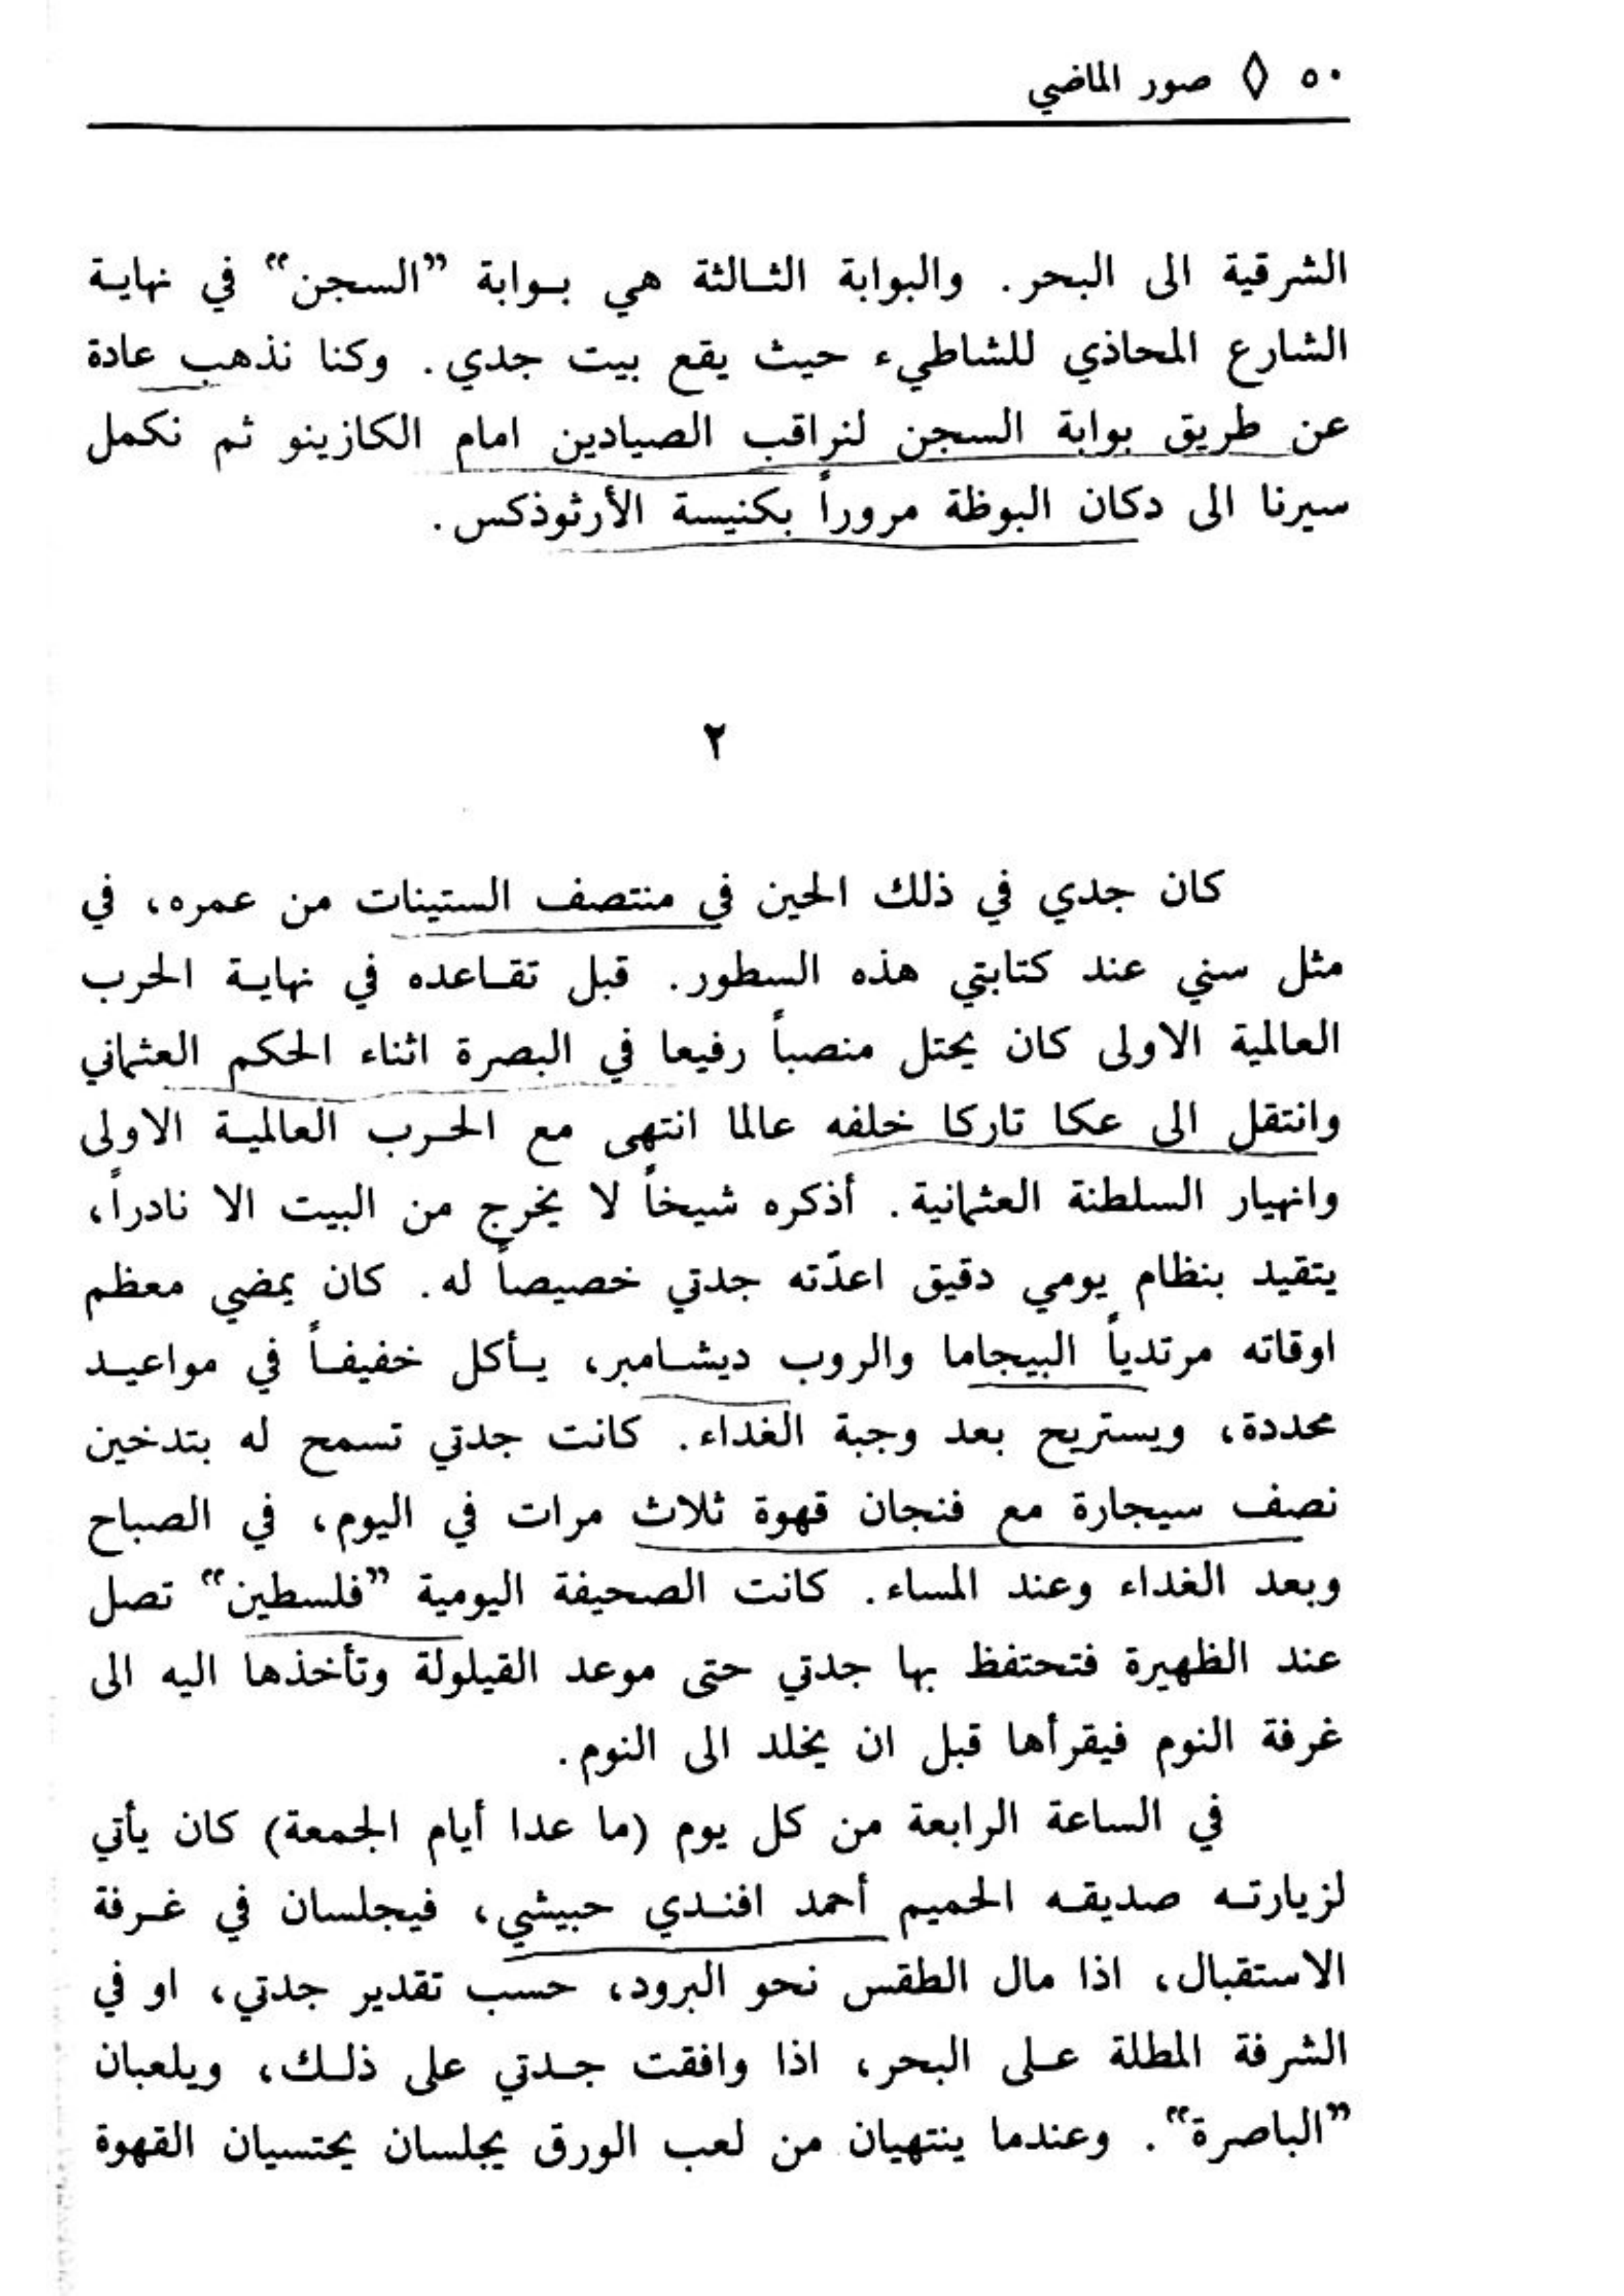 ٥٠ ◊ صور الماضي
الشرقية الى البحر. والبوابة الثالثة هي بوابة ”السجن“ في نهاية
الشارع المحاذي للشاطيء حيث يقع بيت جدي. وكنا نذهب عادة
عن طريق بوابة السجن لنراقب الصيادين امام الكازينو ثم نكمل
سيرنا الى دكان البوظة مروراً بكنيسة الأرثوذكس.
٢
كان جدي في ذلك الحين في منتصف الستينات من عمره، في
مثل سني عند كتابتي هذه السطور. قبل تقاعده في نهاية الحرب
العالمية الاولى كان يحتل منصباً رفيعا في البصرة اثناء الحكم العثماني
وانتقل الى عكا تاركا خلفه عالما انتهى مع الحرب العالمية الاولى
وانهيار السلطنة العثمانية. أذكره شيخاً لا يخرج من البيت الا نادراً،
يتقيد بنظام يومي دقيق اعدّته جدتي خصيصاً له. كان يمضي معظم
اوقاته مرتدياً البيجاما والروب ديشامبر، يأكل خفيفاً في مواعيد
محددة، ويستريح بعد وجبة الغداء. كانت جدتي تسمح له بتدخين
نصف سيجارة مع فنجان قهوة ثلاث مرات في اليوم، في الصباح
وبعد الغداء وعند المساء. كانت الصحيفة اليومية ”فلسطين“ تصل
عند الظهيرة فتحتفظ بها جدتي حتى موعد القيلولة وتأخذها اليه الى
غرفة النوم فيقرأها قبل ان يخلد الى النوم.
في الساعة الرابعة من كل يوم (ما عدا أيام الجمعة) كان يأتي
لزيارته صديقه الحميم أحمد افندي حبيشي، فيجلسان في غرفة
الاستقبال، اذا مال الطقس نحو البرود، حسب تقدير جدتي، او في
الشرفة المطلة على البحر، اذا وافقت جدتي على ذلك، ويلعبان
”الباصرة“. وعندما ينتهيان من لعب الورق يجلسان يحتسيان القهوة